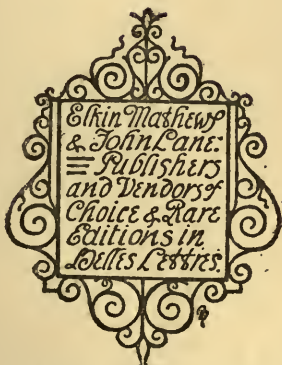 Elkin Mathews
& John Lane:
= Publishers
and Vendors of
Choice & Rare
Editions in
Belles Lettres.